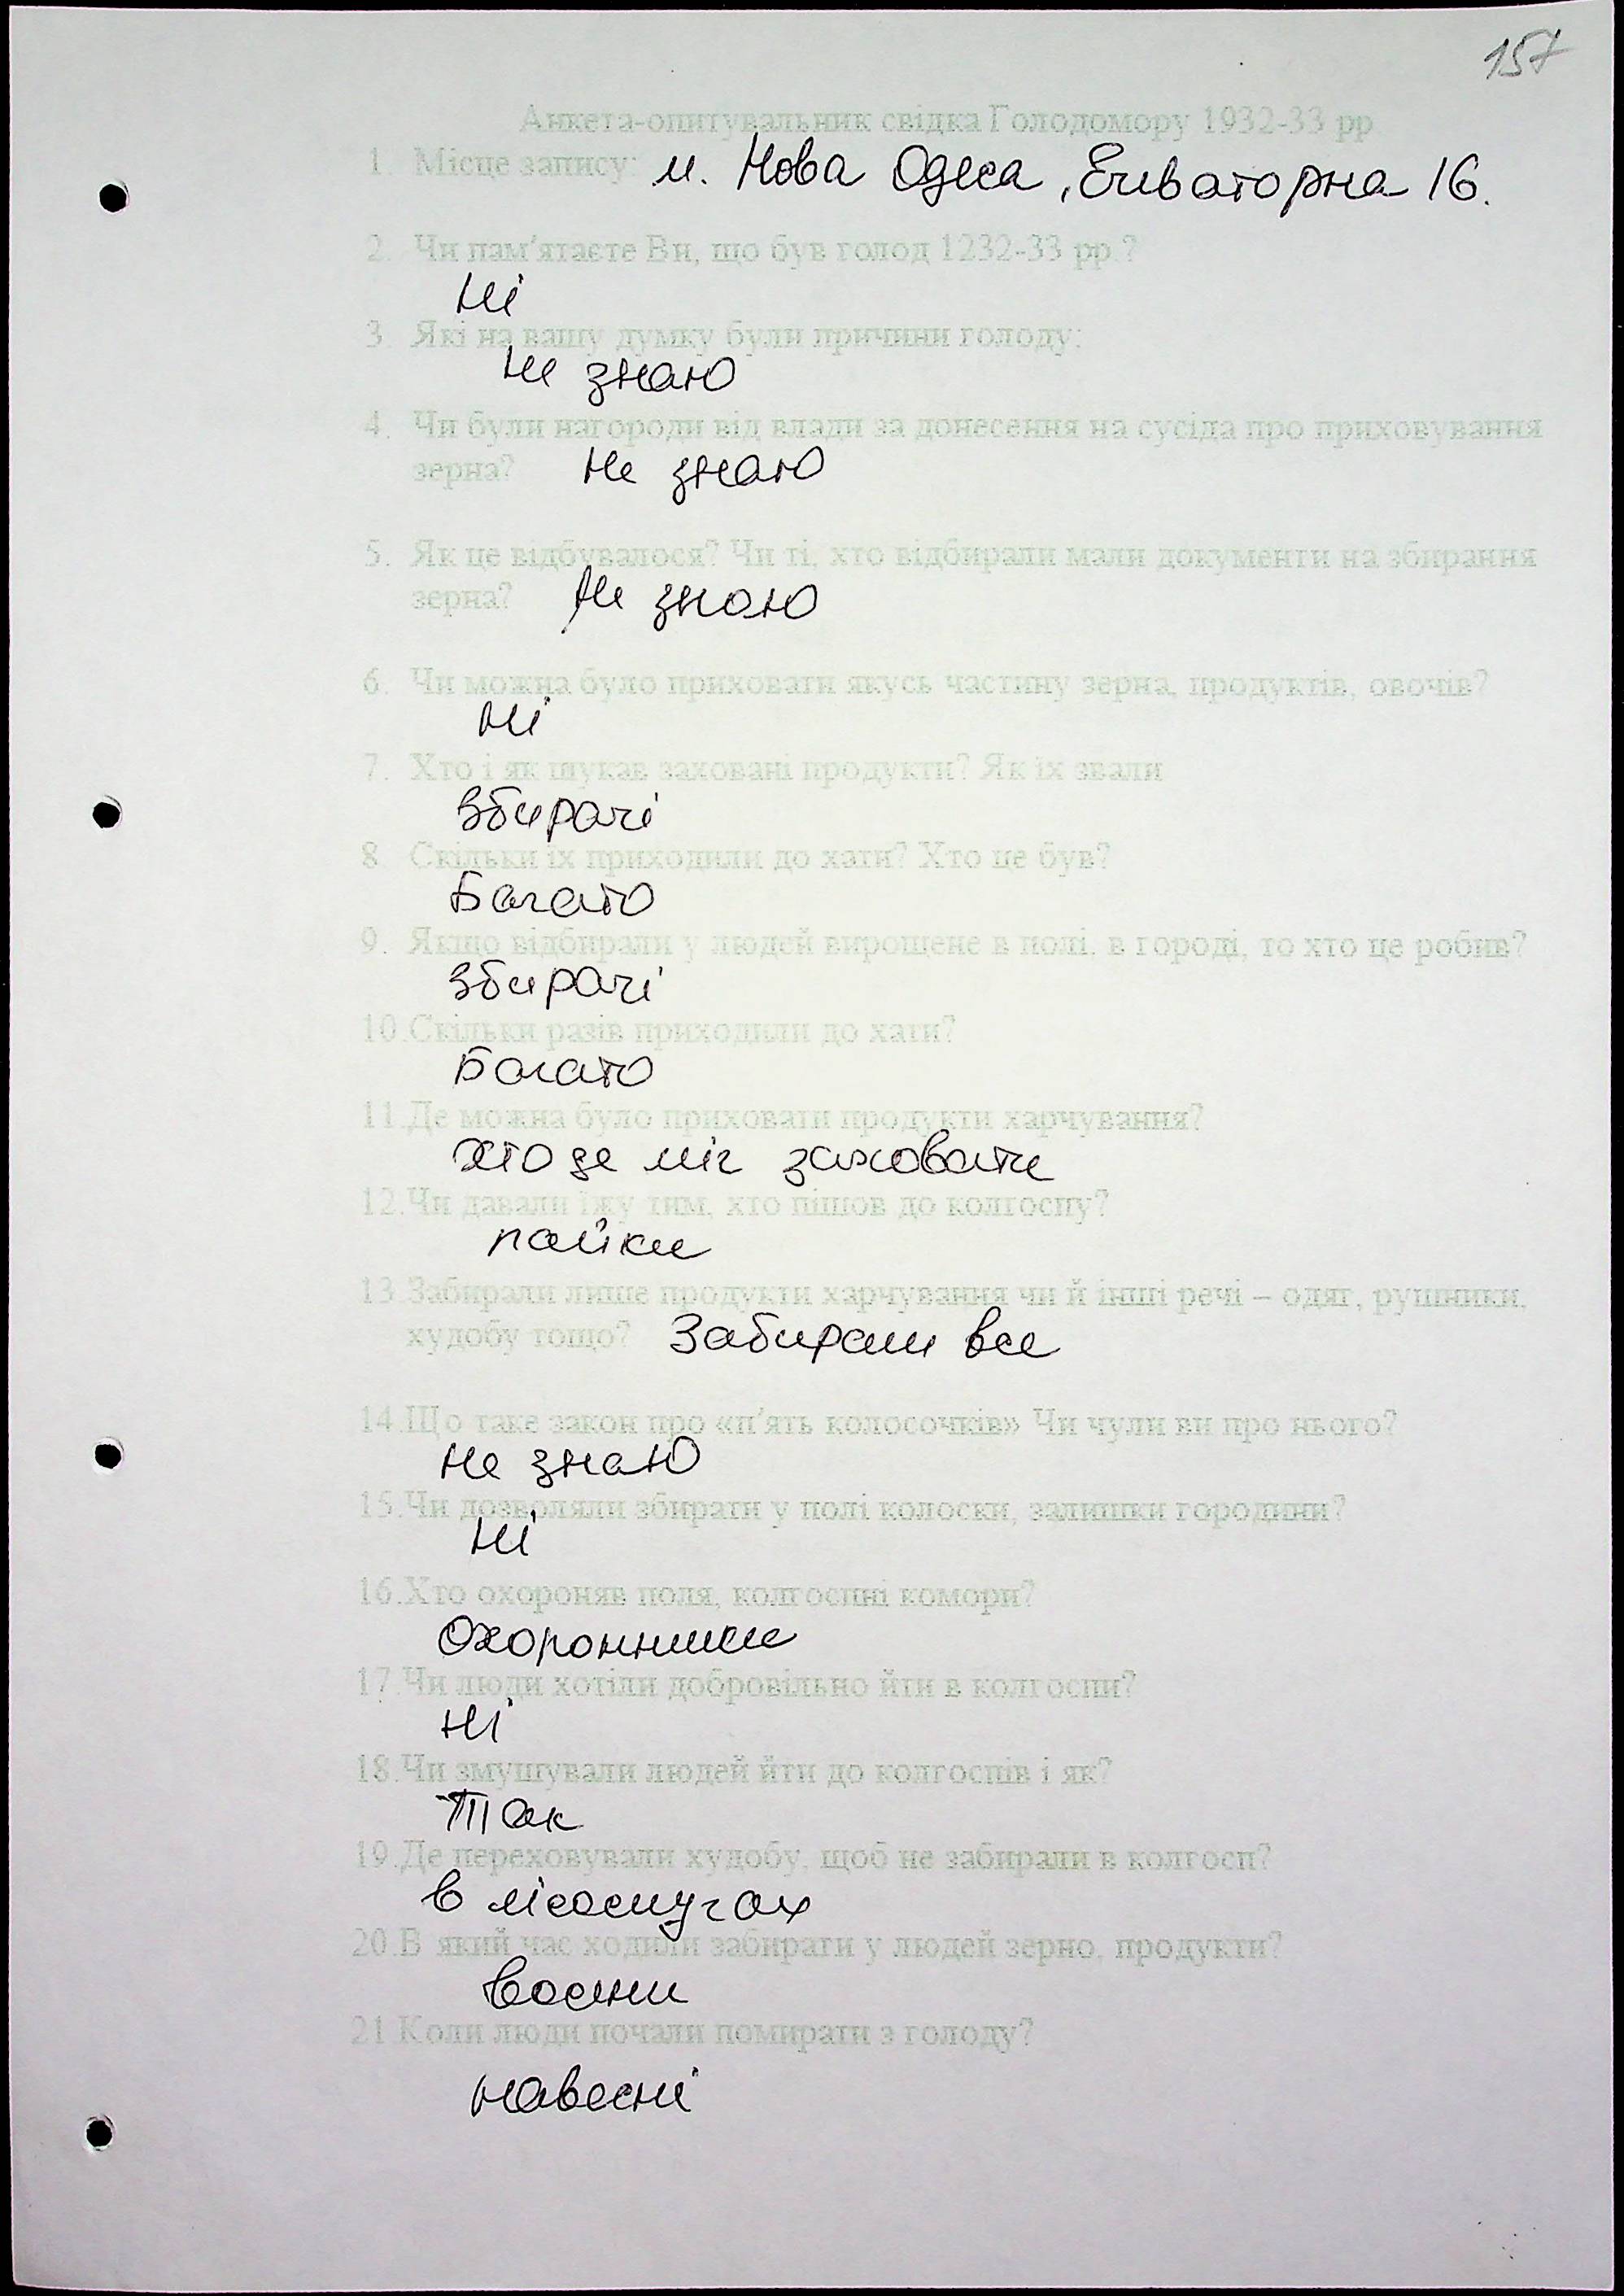 157
Анкета-опитувальник свідка Голодомору 1932-33 рр
1. Місце запису: м. Нова Одеса, Елеваторна 16.
2. Чи пам'ятаєте Ви, що був голод 1232-33 рр.?
Ні
3. Які на вашу думку були причини голоду:
Не знаю
4. Чи були нагороди від влади за донесення на сусіда про приховування
зерна? Не знаю
5. Як це відбувалося? Чи ті, хто відбирали мали документи на збирання
зерна? Не знаю
6. Чи можна було приховати якусь частину зерна, продуктів, овочів?
Ні
7. Хто і як шукав заховані продукти? Як їх звали
Збирачі
8. Скільки їх приходили до хати? Хто це був?
Багато
9. Якщо відбирали у людей вирощене в полі, в городі, то хто це робив?
Збирачі
10.Скільки разів приходили до хати?
Багато
11.Де можна було приховати продукти харчування?
Хто де міг заховати
12.Чи давали їжу тим, хто пішов до колгоспу?
пайки
13.Забирали лише продукти харчування чи й інші речі – одяг, рушники,
худобу тощо? Забирали все
14.Що таке закон про «п'ять колосочків» Чи чули ви про нього?
Не знаю
15.Чи дозволяли збирати у полі колоски, залишки городини?
Ні
16.Хто охороняв поля, колгоспні комори?
Охоронники
17.Чи люди хотіли добровільно йти в колгоспи?
Ні
18.Чи змушували людей йти до колгоспів і як?
Так
19.Де переховували худобу, щоб не забирали в колгосп?
В лісосмугах
20.В який час ходили забирати у людей зерно, продукти?
Восени
21.Коли люди почали помирати з голоду?
Навесні